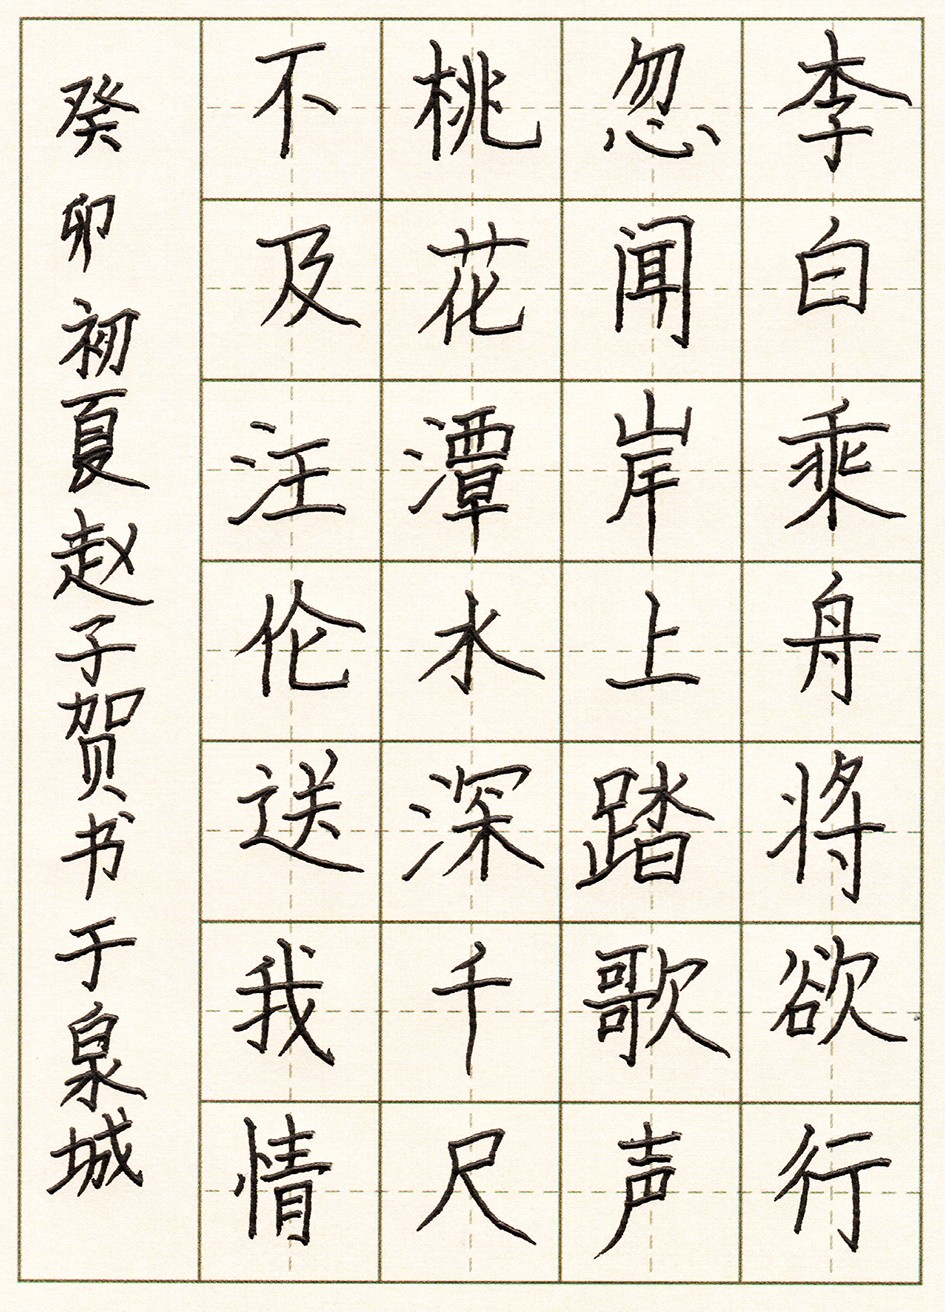 李白乘舟将欲行
忽闻岸上踏歌声
桃花潭水深千尺
不及汪伦送我情
癸卯初夏赵子贺书于泉城